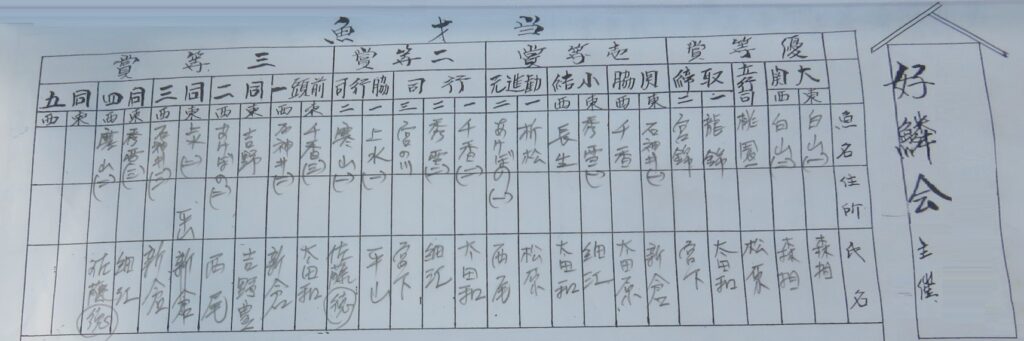 好鱗会 主催
当才魚
優等賞
壱等賞
二等賞
三等賞
魚名
住所
氏名
大関
東 白山(一) 森相
西 白山(二) 森相
立行司 桃園 松原
取締
一 龍錦 太田和
二 宮錦 宮下
関脇
東 石神井(一) 新倉
西 千香 太田原
小結
東 秀雪(一) 細江
西 長生 太田和
勧進元
一 折松 松原
二 あけぼの(一) 西尾
行司
一 千香(二) 太田和
二 秀雪(二) 細江
三 宮の川 宮下
脇行司
一 上水(一) 平山
二 寒山(一) 佐藤
前頭一
東 千香(三) 太田和
西 石神井 新倉
同二
東 吉野 吉野豊
西 あけぼの 西尾
同三
東 上水 新倉
西 石神井 新倉
同四
東 秀雪(三) 細江
西 寒山(二) 佐藤
同五
東
西